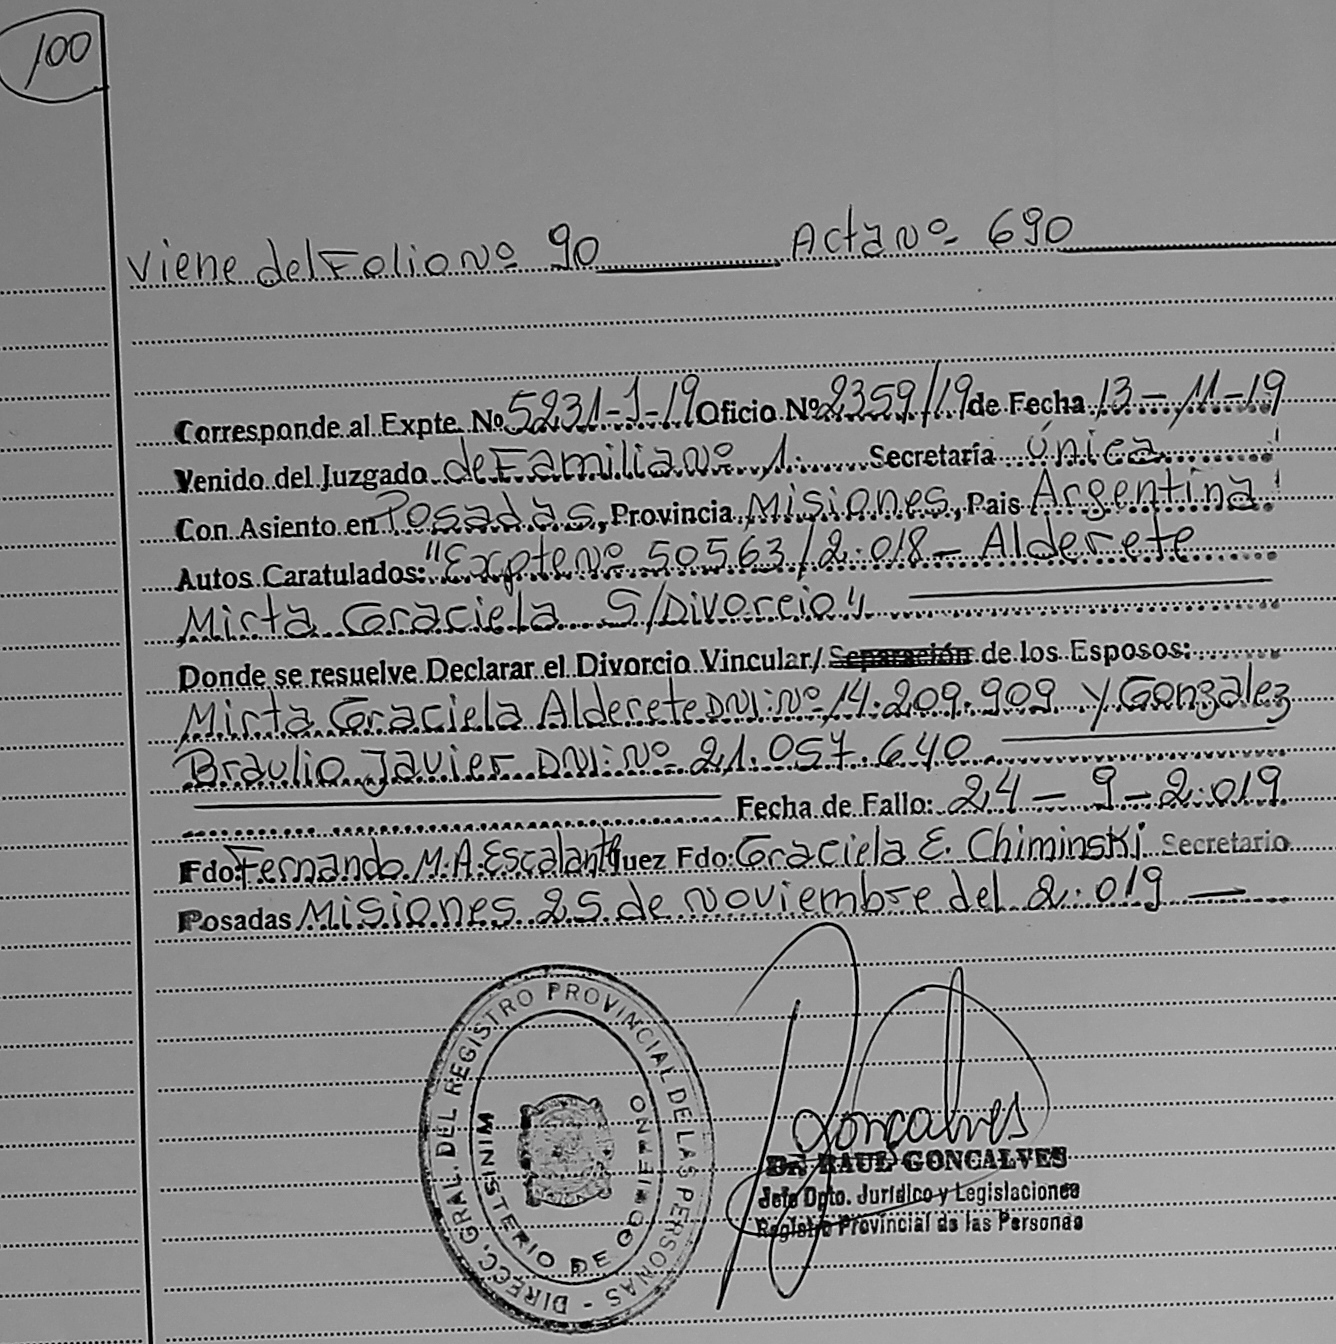 100
Viene del Folio Nº 90 Acta Nº 690
Corresponde al Expte. Nº 5231-J-19 Oficio Nº 2359/19 de Fecha 13-11-19
Venido del Juzgado de Familia Nº 1. Secretaría Única
Con Asiento en Posadas, Provincia Misiones, Pais Argentina
Autos Caratulados: "Expte Nº 50563/2.018 - Alderete
Mirta Graciela S/Divorcio"
Donde se resuelve Declarar el Divorcio Vincular/ Separación de los Esposos:
Mirta Graciela Alderete DNI: Nº 14.209.909 y Gonzalez
Braulio Javier DNI: Nº 21.057.640
Fecha de Fallo: 24-9-2.019
Fdo: Fernando M.A. Escalante Juez Fdo: Graciela E. Chiminski Secretario
Posadas Misiones 25 de Noviembre del 2.019
DIRECC. GRAL. DEL REGISTRO PROVINCIAL DE LAS PERSONAS -
MINISTERIO DE GOBIERNO
Goncalves
Dr. RAUL GONCALVES
Jefe Dpto. Jurídico y Legislaciones
Registro Provincial de las Personas